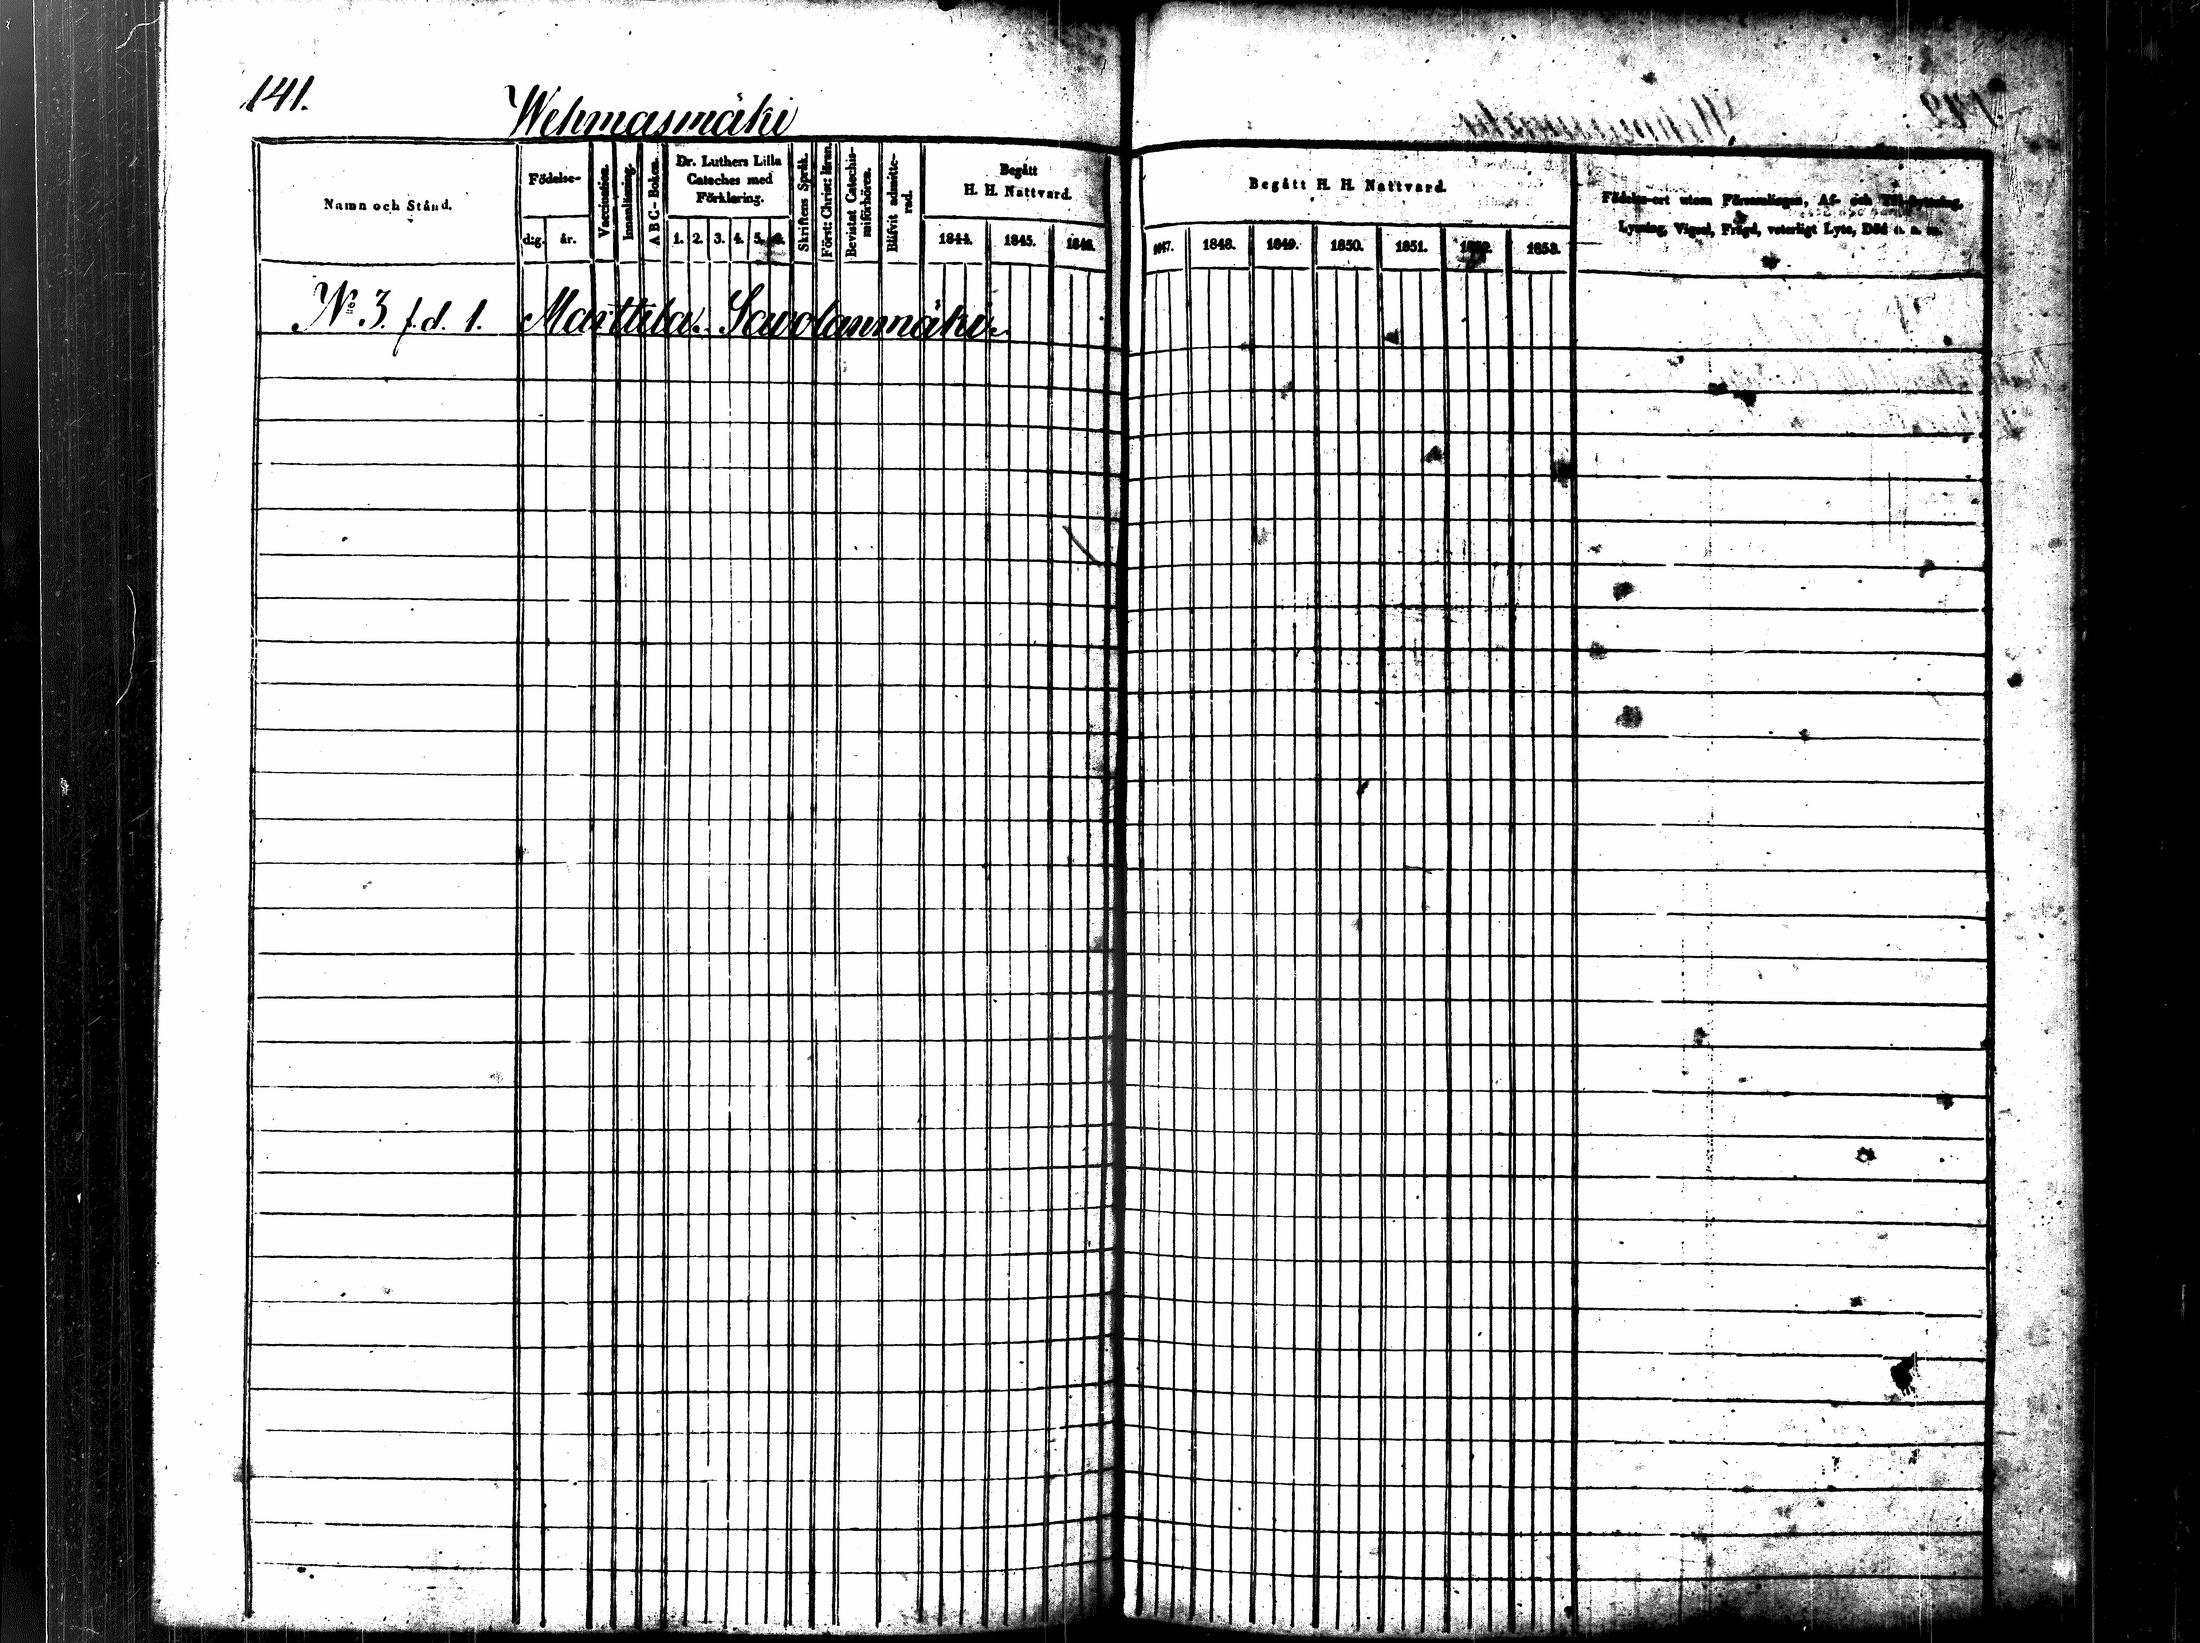 141.
Wehmasmäki
Namn och Stånd.
Födelse-
d:g. år.
Vaccination.
Innanläsning.
A B C - Boken.
Dr. Luthers Lilla
Cateches med
Förklaring.
1. 2. 3. 4. 5. 6.
Skriftens Språk.
Först: Christ: läran.
Bevistat Catechis-
miförhören.
Blifvit admitte-
rad.
Begått
H. H. Nattvard.
1844. 1845. 1846.
Begått H. H. Nattvard.
1847. 1848. 1849. 1850. 1851. 1852. 1853.
Födelse-ort utom Församlingen, Af- och Till-flyttning,
Lysning, Vigsel, Frägd, veterligt Lyte, Död
No 3. f.d. 1. Marttila. Sawolanmäki.